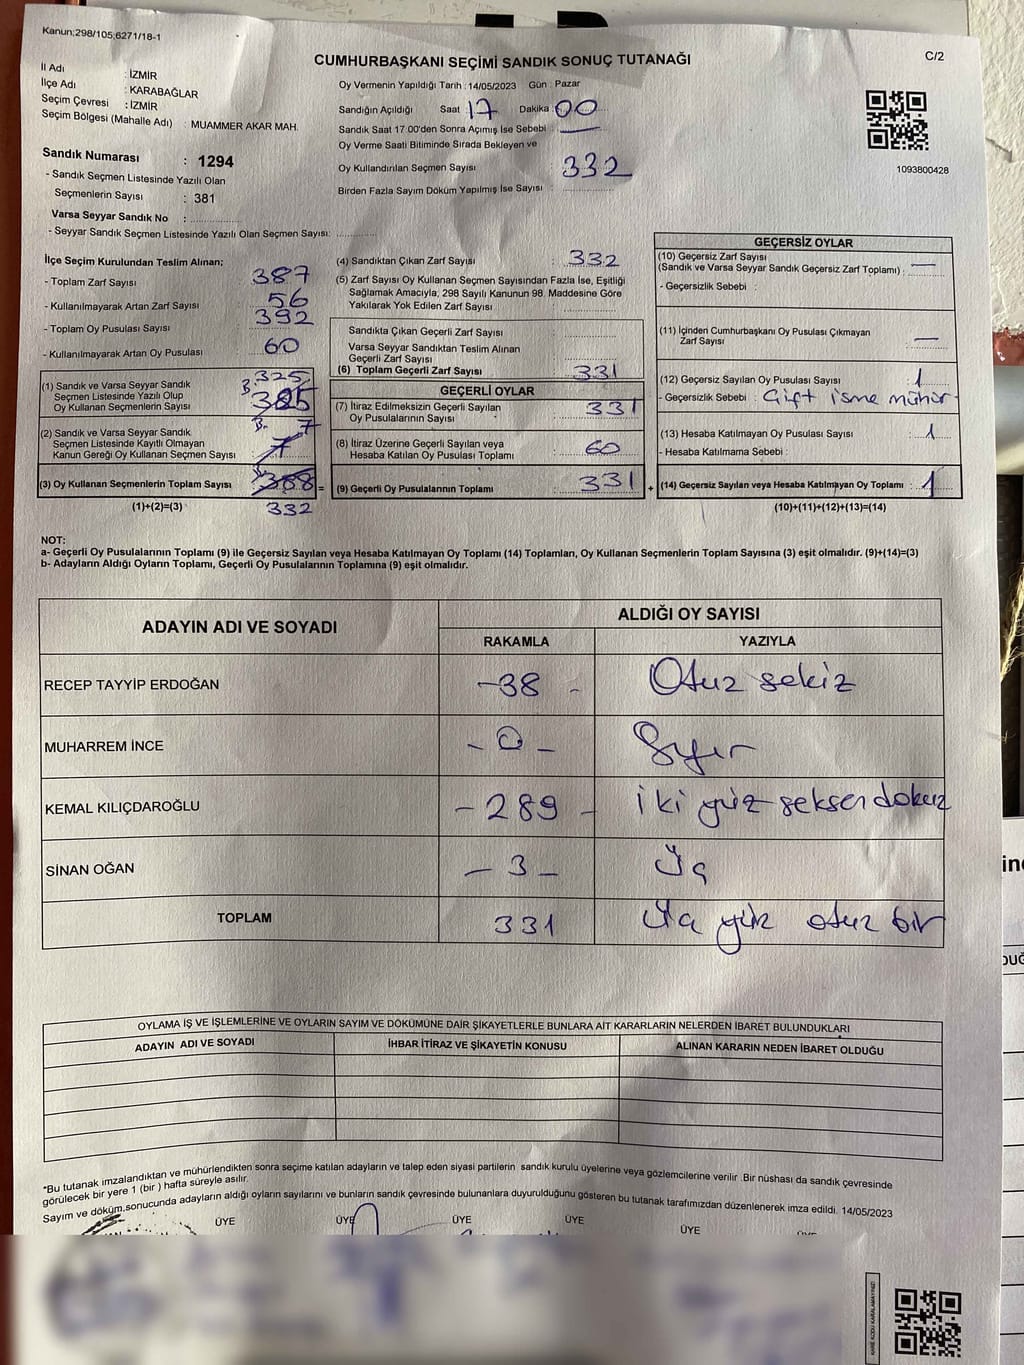 Kanun;298/105;6271/18-1
CUMHURBAŞKANI SEÇİMİ SANDIK SONUÇ TUTANAĞI
C/2
İl Adı : İZMİR
İlçe Adı : KARABAĞLAR
Seçim Çevresi : İZMİR
Seçim Bölgesi (Mahalle Adı) : MUAMMER AKAR MAH.
Oy Vermenin Yapıldığı Tarih : 14/05/2023 Gün : Pazar
Sandığın Açıldığı Saat : 17 Dakika : 00
Sandık Saat 17:00'den Sonra Açımış İse Sebebi : —
Oy Verme Saati Bitiminde Sırada Bekleyen ve
Oy Kullandırılan Seçmen Sayısı : 332
Birden Fazla Sayım Döküm Yapılmış İse Sayısı :
1093800428
Sandık Numarası : 1294
- Sandık Seçmen Listesinde Yazılı Olan
Seçmenlerin Sayısı : 381
Varsa Seyyar Sandık No :
- Seyyar Sandık Seçmen Listesinde Yazılı Olan Seçmen Sayısı:
İlçe Seçim Kurulundan Teslim Alınan;
- Toplam Zarf Sayısı : 387
- Kullanılmayarak Artan Zarf Sayısı : 56
- Toplam Oy Pusulası Sayısı : 392
- Kullanılmayarak Artan Oy Pusulası : 60
(1) Sandık ve Varsa Seyyar Sandık
Seçmen Listesinde Yazılı Olup
Oy Kullanan Seçmenlerin Sayısı
325
385
(2) Sandık ve Varsa Seyyar Sandık
Seçmen Listesinde Kayıtlı Olmayan
Kanun Gereği Oy Kullanan Seçmen Sayısı
7
7
(3) Oy Kullanan Seçmenlerin Toplam Sayısı : 388 =
(1)+(2)=(3)
332
(4) Sandıktan Çıkan Zarf Sayısı : 332
(5) Zarf Sayısı Oy Kullanan Seçmen Sayısından Fazla İse, Eşitliği
Sağlamak Amacıyla, 298 Sayılı Kanunun 98. Maddesine Göre
Yakılarak Yok Edilen Zarf Sayısı :
Sandıkta Çıkan Geçerli Zarf Sayısı :
Varsa Seyyar Sandıktan Teslim Alınan
Geçerli Zarf Sayısı :
(6) Toplam Geçerli Zarf Sayısı : 331
GEÇERLİ OYLAR
(7) İtiraz Edilmeksizin Geçerli Sayılan
Oy Pusulalarının Sayısı : 331
(8) İtiraz Üzerine Geçerli Sayılan veya
Hesaba Katılan Oy Pusulası Toplamı : 60
(9) Geçerli Oy Pusulalarının Toplamı : 331 +
GEÇERSİZ OYLAR
(10) Geçersiz Zarf Sayısı
(Sandık ve Varsa Seyyar Sandık Geçersiz Zarf Toplamı) : —
- Geçersizlik Sebebi :
(11) İçinden Cumhurbaşkanı Oy Pusulası Çıkmayan
Zarf Sayısı : —
(12) Geçersiz Sayılan Oy Pusulası Sayısı : 1
- Geçersizlik Sebebi : Çift isme mühür
(13) Hesaba Katılmayan Oy Pusulası Sayısı : 1
- Hesaba Katılmama Sebebi :
(14) Geçersiz Sayılan veya Hesaba Katılmayan Oy Toplamı : 1
(10)+(11)+(12)+(13)=(14)
NOT:
a- Geçerli Oy Pusulalarının Toplamı (9) ile Geçersiz Sayılan veya Hesaba Katılmayan Oy Toplamı (14) Toplamları, Oy Kullanan Seçmenlerin Toplam Sayısına (3) eşit olmalıdır. (9)+(14)=(3)
b- Adayların Aldığı Oyların Toplamı, Geçerli Oy Pusulalarının Toplamına (9) eşit olmalıdır.
ADAYIN ADI VE SOYADI
ALDIĞI OY SAYISI
RAKAMLA
YAZIYLA
RECEP TAYYİP ERDOĞAN -38 - Otuz sekiz
MUHARREM İNCE - 0 - Sıfır
KEMAL KILIÇDAROĞLU - 289 - iki yüz seksen dokuz
SİNAN OĞAN - 3 - Üç
TOPLAM 331 Üç yüz otuz bir
OYLAMA İŞ VE İŞLEMLERİNE VE OYLARIN SAYIM VE DÖKÜMÜNE DAİR ŞİKAYETLERLE BUNLARA AİT KARARLARIN NELERDEN İBARET BULUNDUKLARI
ADAYIN ADI VE SOYADI
İHBAR İTİRAZ VE ŞİKAYETİN KONUSU
ALINAN KARARIN NEDEN İBARET OLDUĞU
*Bu tutanak imzalandıktan ve mühürlendikten sonra seçime katılan adayların ve talep eden siyasi partilerin sandık kurulu üyelerine veya gözlemcilerine verilir. Bir nüshası da sandık çevresinde
görülecek bir yere 1 (bir) hafta süreyle asılır.
Sayım ve döküm sonucunda adayların aldığı oyların sayılarını ve bunların sandık çevresinde bulunanlara duyurulduğunu gösteren bu tutanak tarafımızdan düzenlenerek imza edildi. 14/05/2023
ÜYE ÜYE ÜYE ÜYE ÜYE